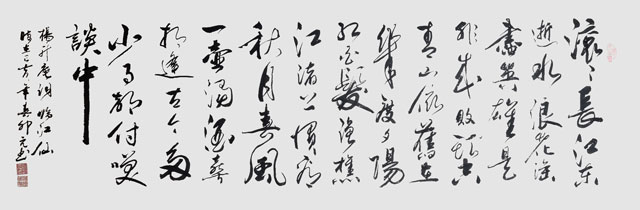 滚〻長江东
逝水浪花淘
盡英雄是
非成敗轉头空
青山依舊在
幾度夕陽
紅白髮漁樵
江渚上慣看
秋月春風
一壺濁酒喜
相逢古今多
少事都付笑
談中
楊升庵詞臨江仙